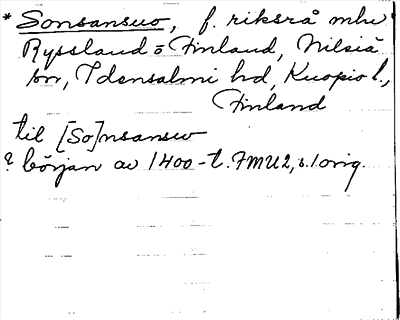 * Sonsansuo, f. riksrå mlw
Ryssland o Finland, Nilsiä
sn, Idensalmi hd, Kuopio l.,
Finland
til [So]nsansuo
? början av 1400-t. FMU2, s.1 orig.